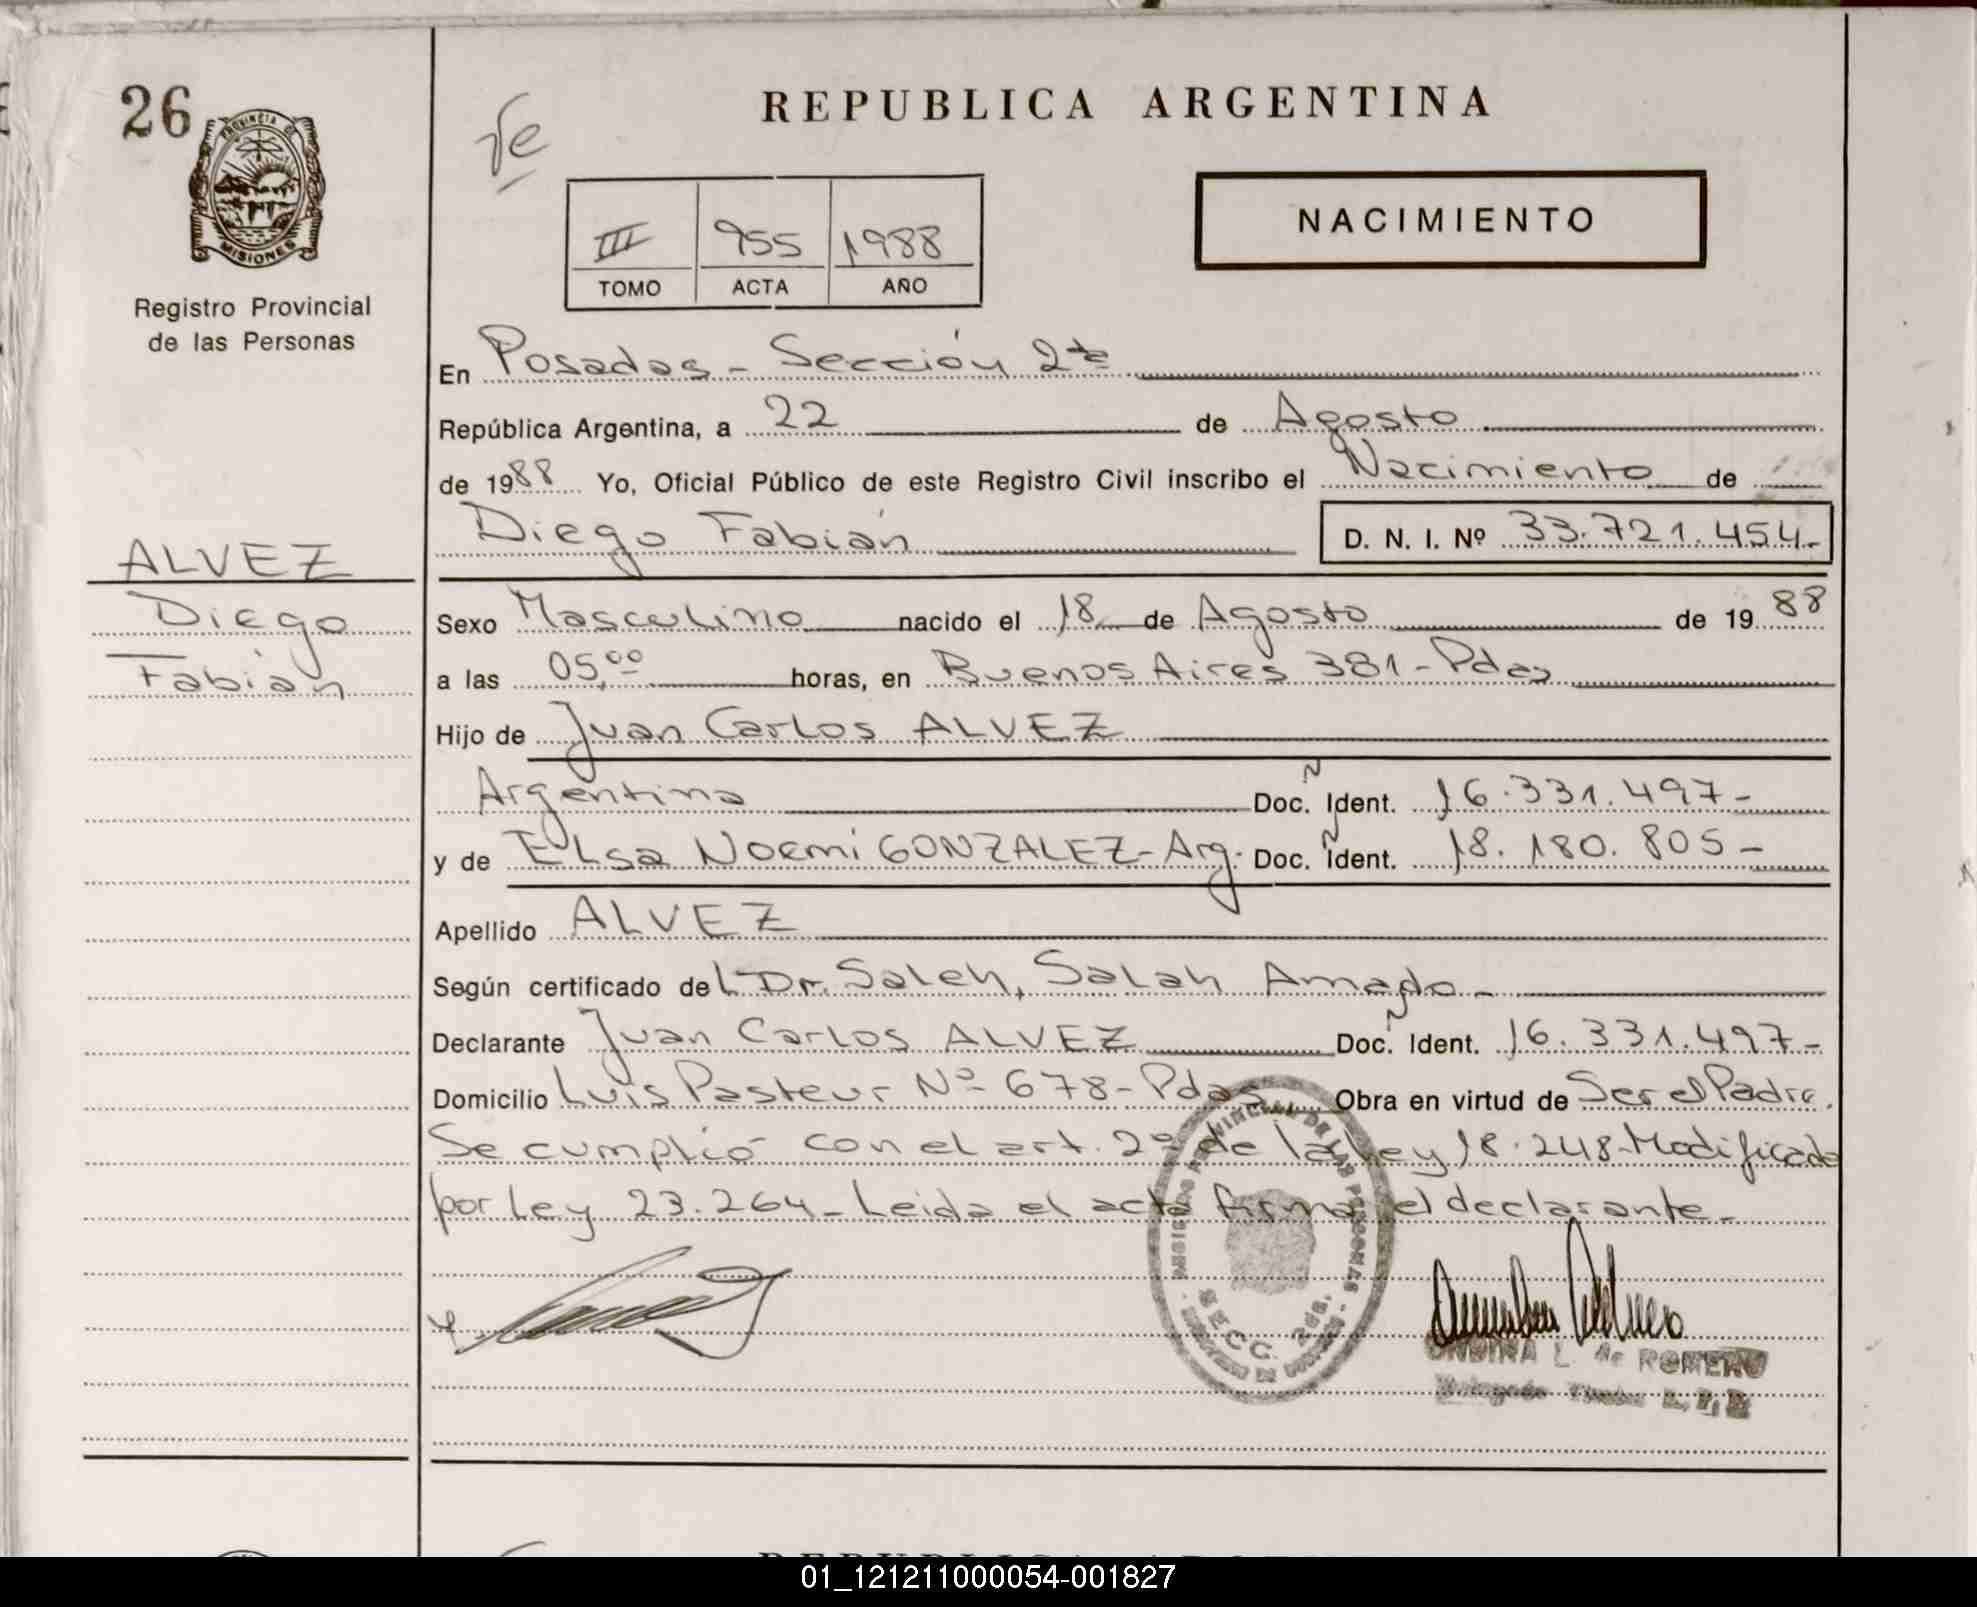 26
PROVINCIA DE
MISIONES
Registro Provincial
de las Personas
REPUBLICA ARGENTINA
NACIMIENTO
III 955 1988
TOMO ACTA AÑO
En Posadas - Sección 2da
República Argentina, a 22 de Agosto
de 1988 Yo, Oficial Público de este Registro Civil inscribo el Nacimiento de
Diego Fabián D. N. I. Nº 33.721.454-
ALVEZ
Diego
Fabián
Sexo Masculino nacido el 18 de Agosto de 1988
a las 05,00 horas, en Buenos Aires 381 - Pdas
Hijo de Juan Carlos ALVEZ
Argentina Doc. Ident. 16.331.497-
y de ELsa Noemi GONZALEZ - Arg. Doc. Ident. 18.180.805-
Apellido ALVEZ
Según certificado del Dr. Saleh, Salah Amado-
Declarante Juan Carlos ALVEZ Doc. Ident. 16.331.497-
Domicilio Luis Pasteur Nº 678 - Pdas Obra en virtud de Ser el Padre.
Se cumplió con el art. 2º de la Ley 18.248-Modificado
por Ley 23.264 - Leida el acta firma el declarante-
SECC. 2da.
ONDINA L. de ROMERO
REPUBLICA
01_121211000054-001827